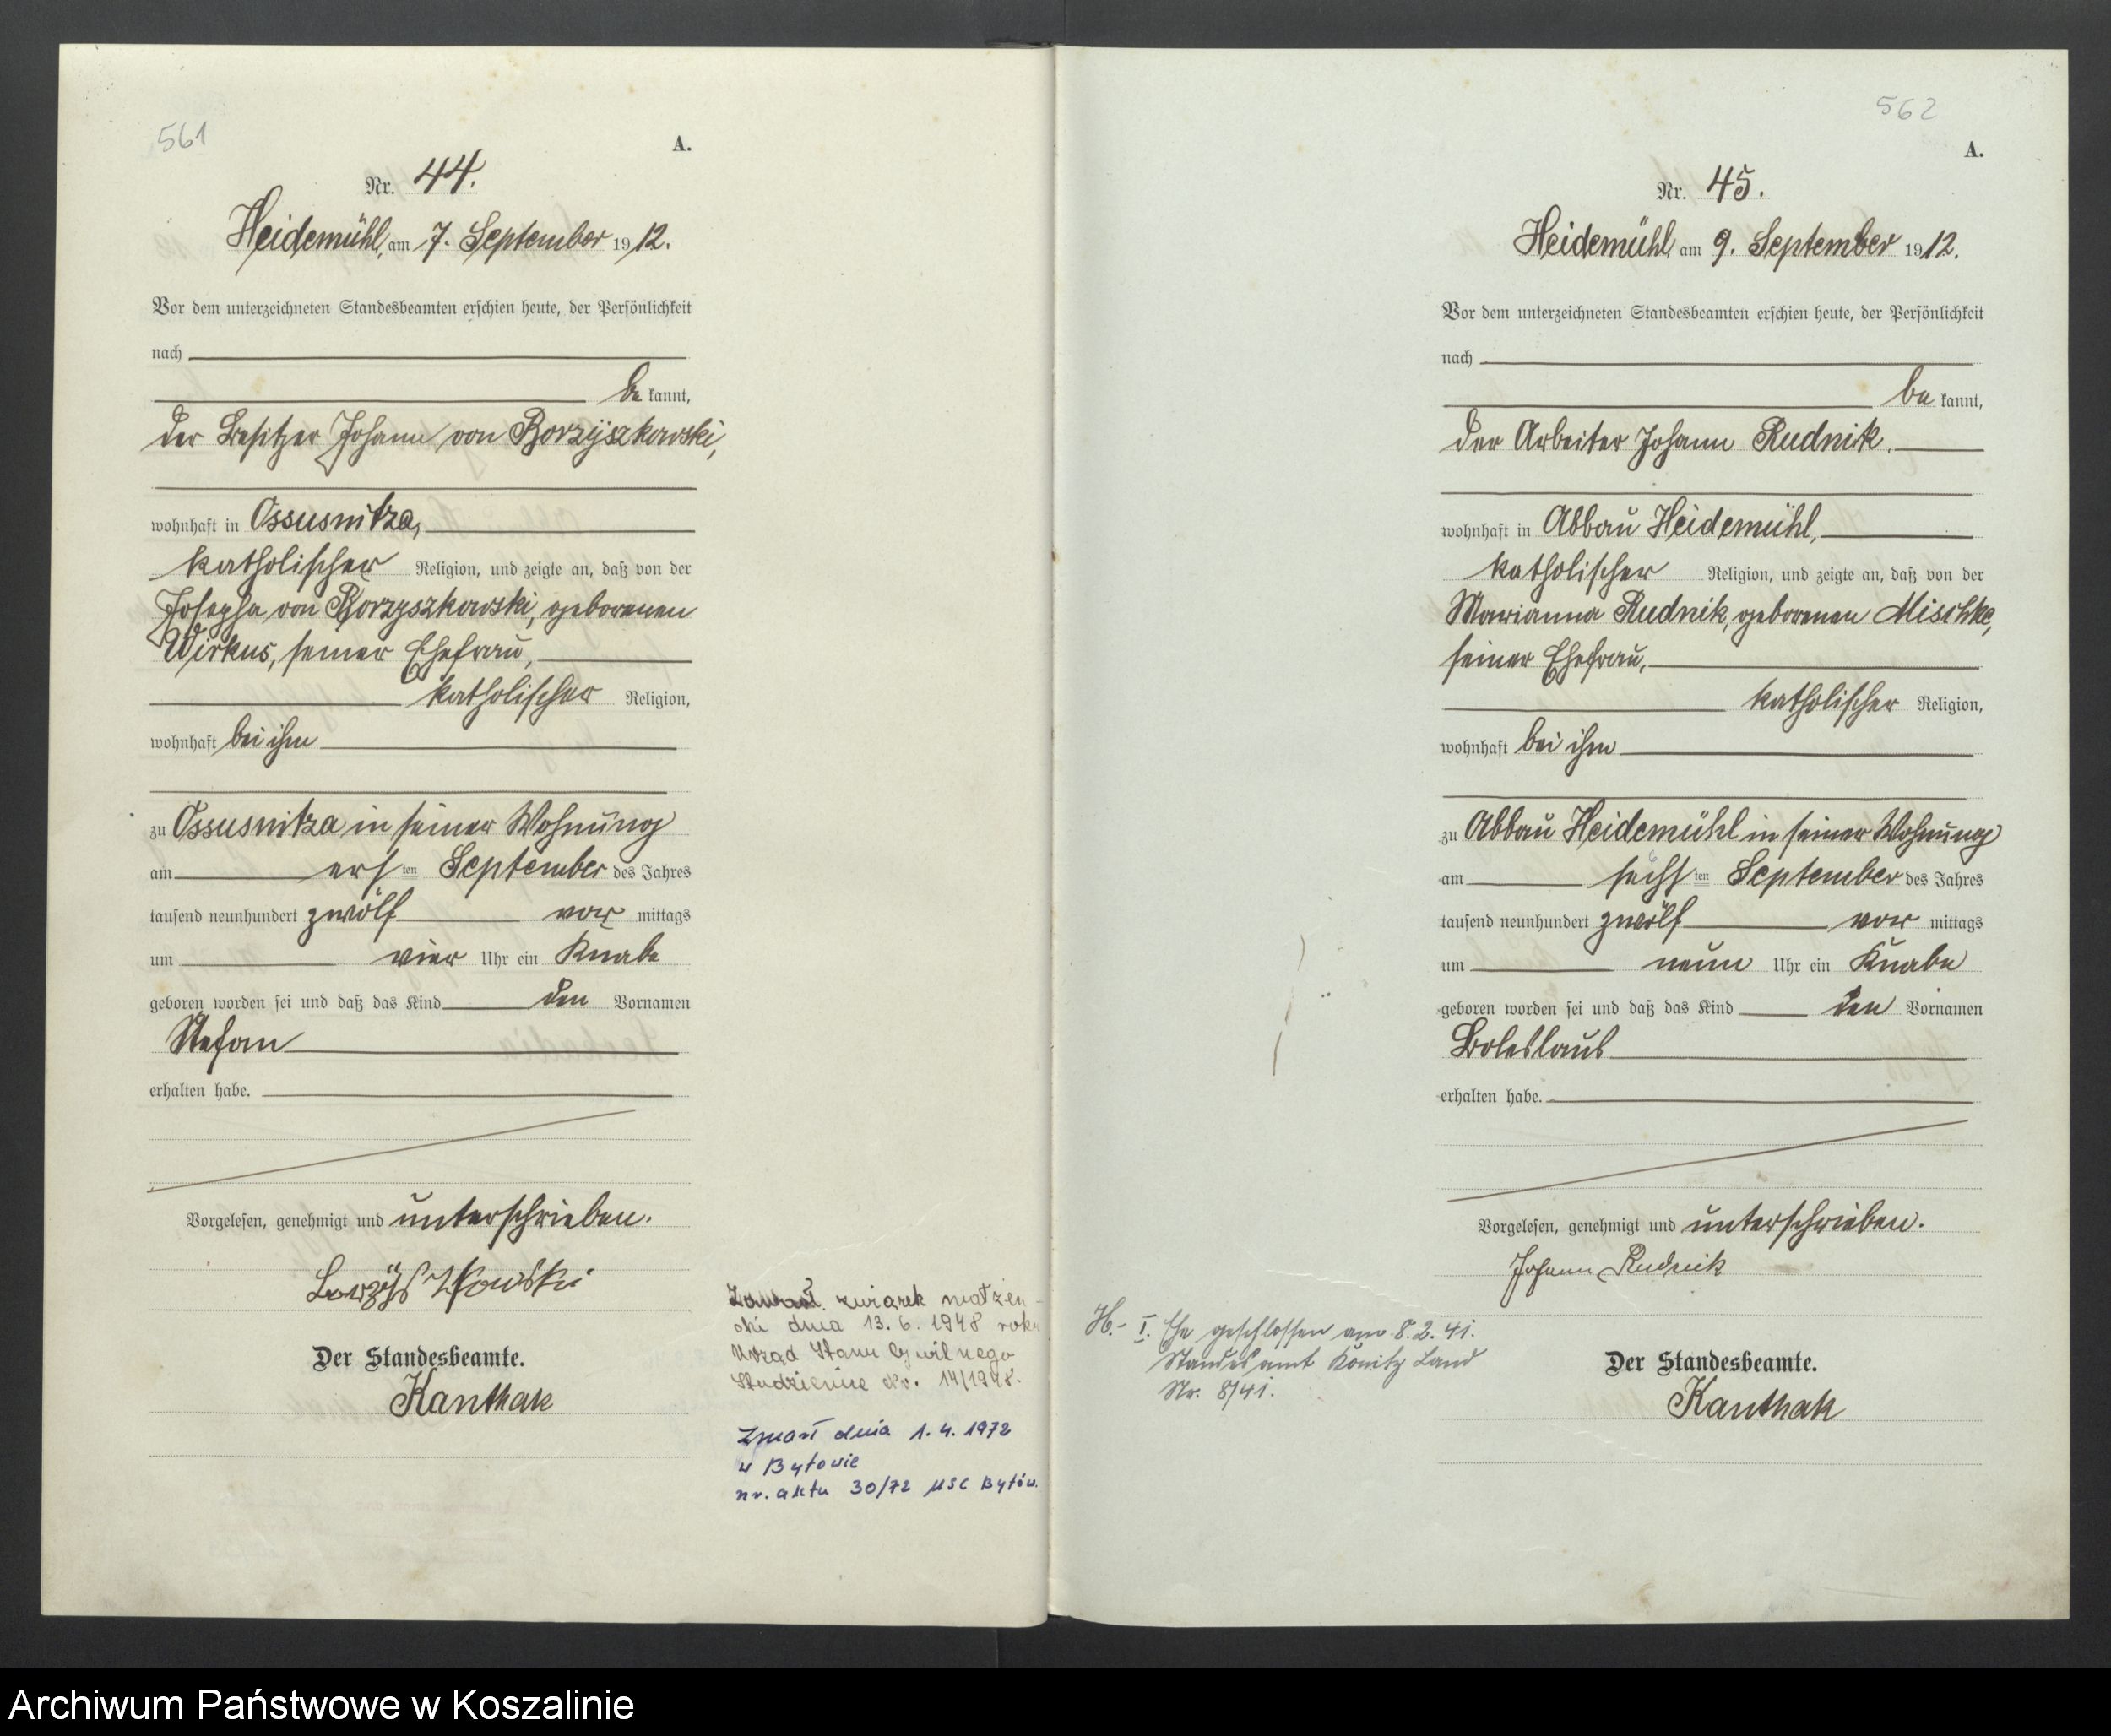 561
A.
Nr. 44.
Heidemühl, am 7. September 1912.
Vor dem unterzeichneten Standesbeamten erschien heute, der Persönlichkeit
nach
be kannt,
der Besitzer Johann von Borzyszkowski,
wohnhaft in Ossusnitza,
katholischer Religion, und zeigte an, daß von der
Josepha von Borzyszkowski, geborenen
Wirkus, seiner Ehefrau,
katholischer Religion,
wohnhaft bei ihm
zu Ossusnitza in seiner Wohnung
am ersten September des Jahres
tausend neunhundert zwölf vor mittags
um vier Uhr ein Knabe
geboren worden sei und daß das Kind den Vornamen
Stefan
erhalten habe.
Vorgelesen, genehmigt und unterschrieben.
Der Standesbeamte.
Kanthak
Zawarł związek małżeń-
ski dnia 13. 6. 1948 roku
Urząd Stanu Cywilnego
Studzienice Nr. 14/1948.
Zmarł dnia 1. 4. 1972
w Bytowie
nr. aktu 30/72 USC Bytów.
562
A.
Nr. 45.
Heidemühl, am 9. September 1912.
Vor dem unterzeichneten Standesbeamten erschien heute, der Persönlichkeit
nach
be kannt,
der Arbeiter Johann Rudnik.
wohnhaft in Abbau Heidemühl,
katholischer Religion, und zeigte an, daß von der
Marianna Rudnik, geborenen Mischke,
seiner Ehefrau,
katholischer Religion,
wohnhaft bei ihm
zu Abbau Heidemühl in seiner Wohnung
am sechsten September des Jahres
tausend neunhundert zwölf vor mittags
um neun Uhr ein Knabe
geboren worden sei und daß das Kind den Vornamen
Boleslaus
erhalten habe.
Vorgelesen, genehmigt und unterschrieben.
Johann Rudnik
Der Standesbeamte.
Kanthak
H.- I. Ehe geschlossen am 8. 2. 41.
Standesamt Konitz Land
Nr. 8/41.
Archiwum Państwowe w Koszalinie